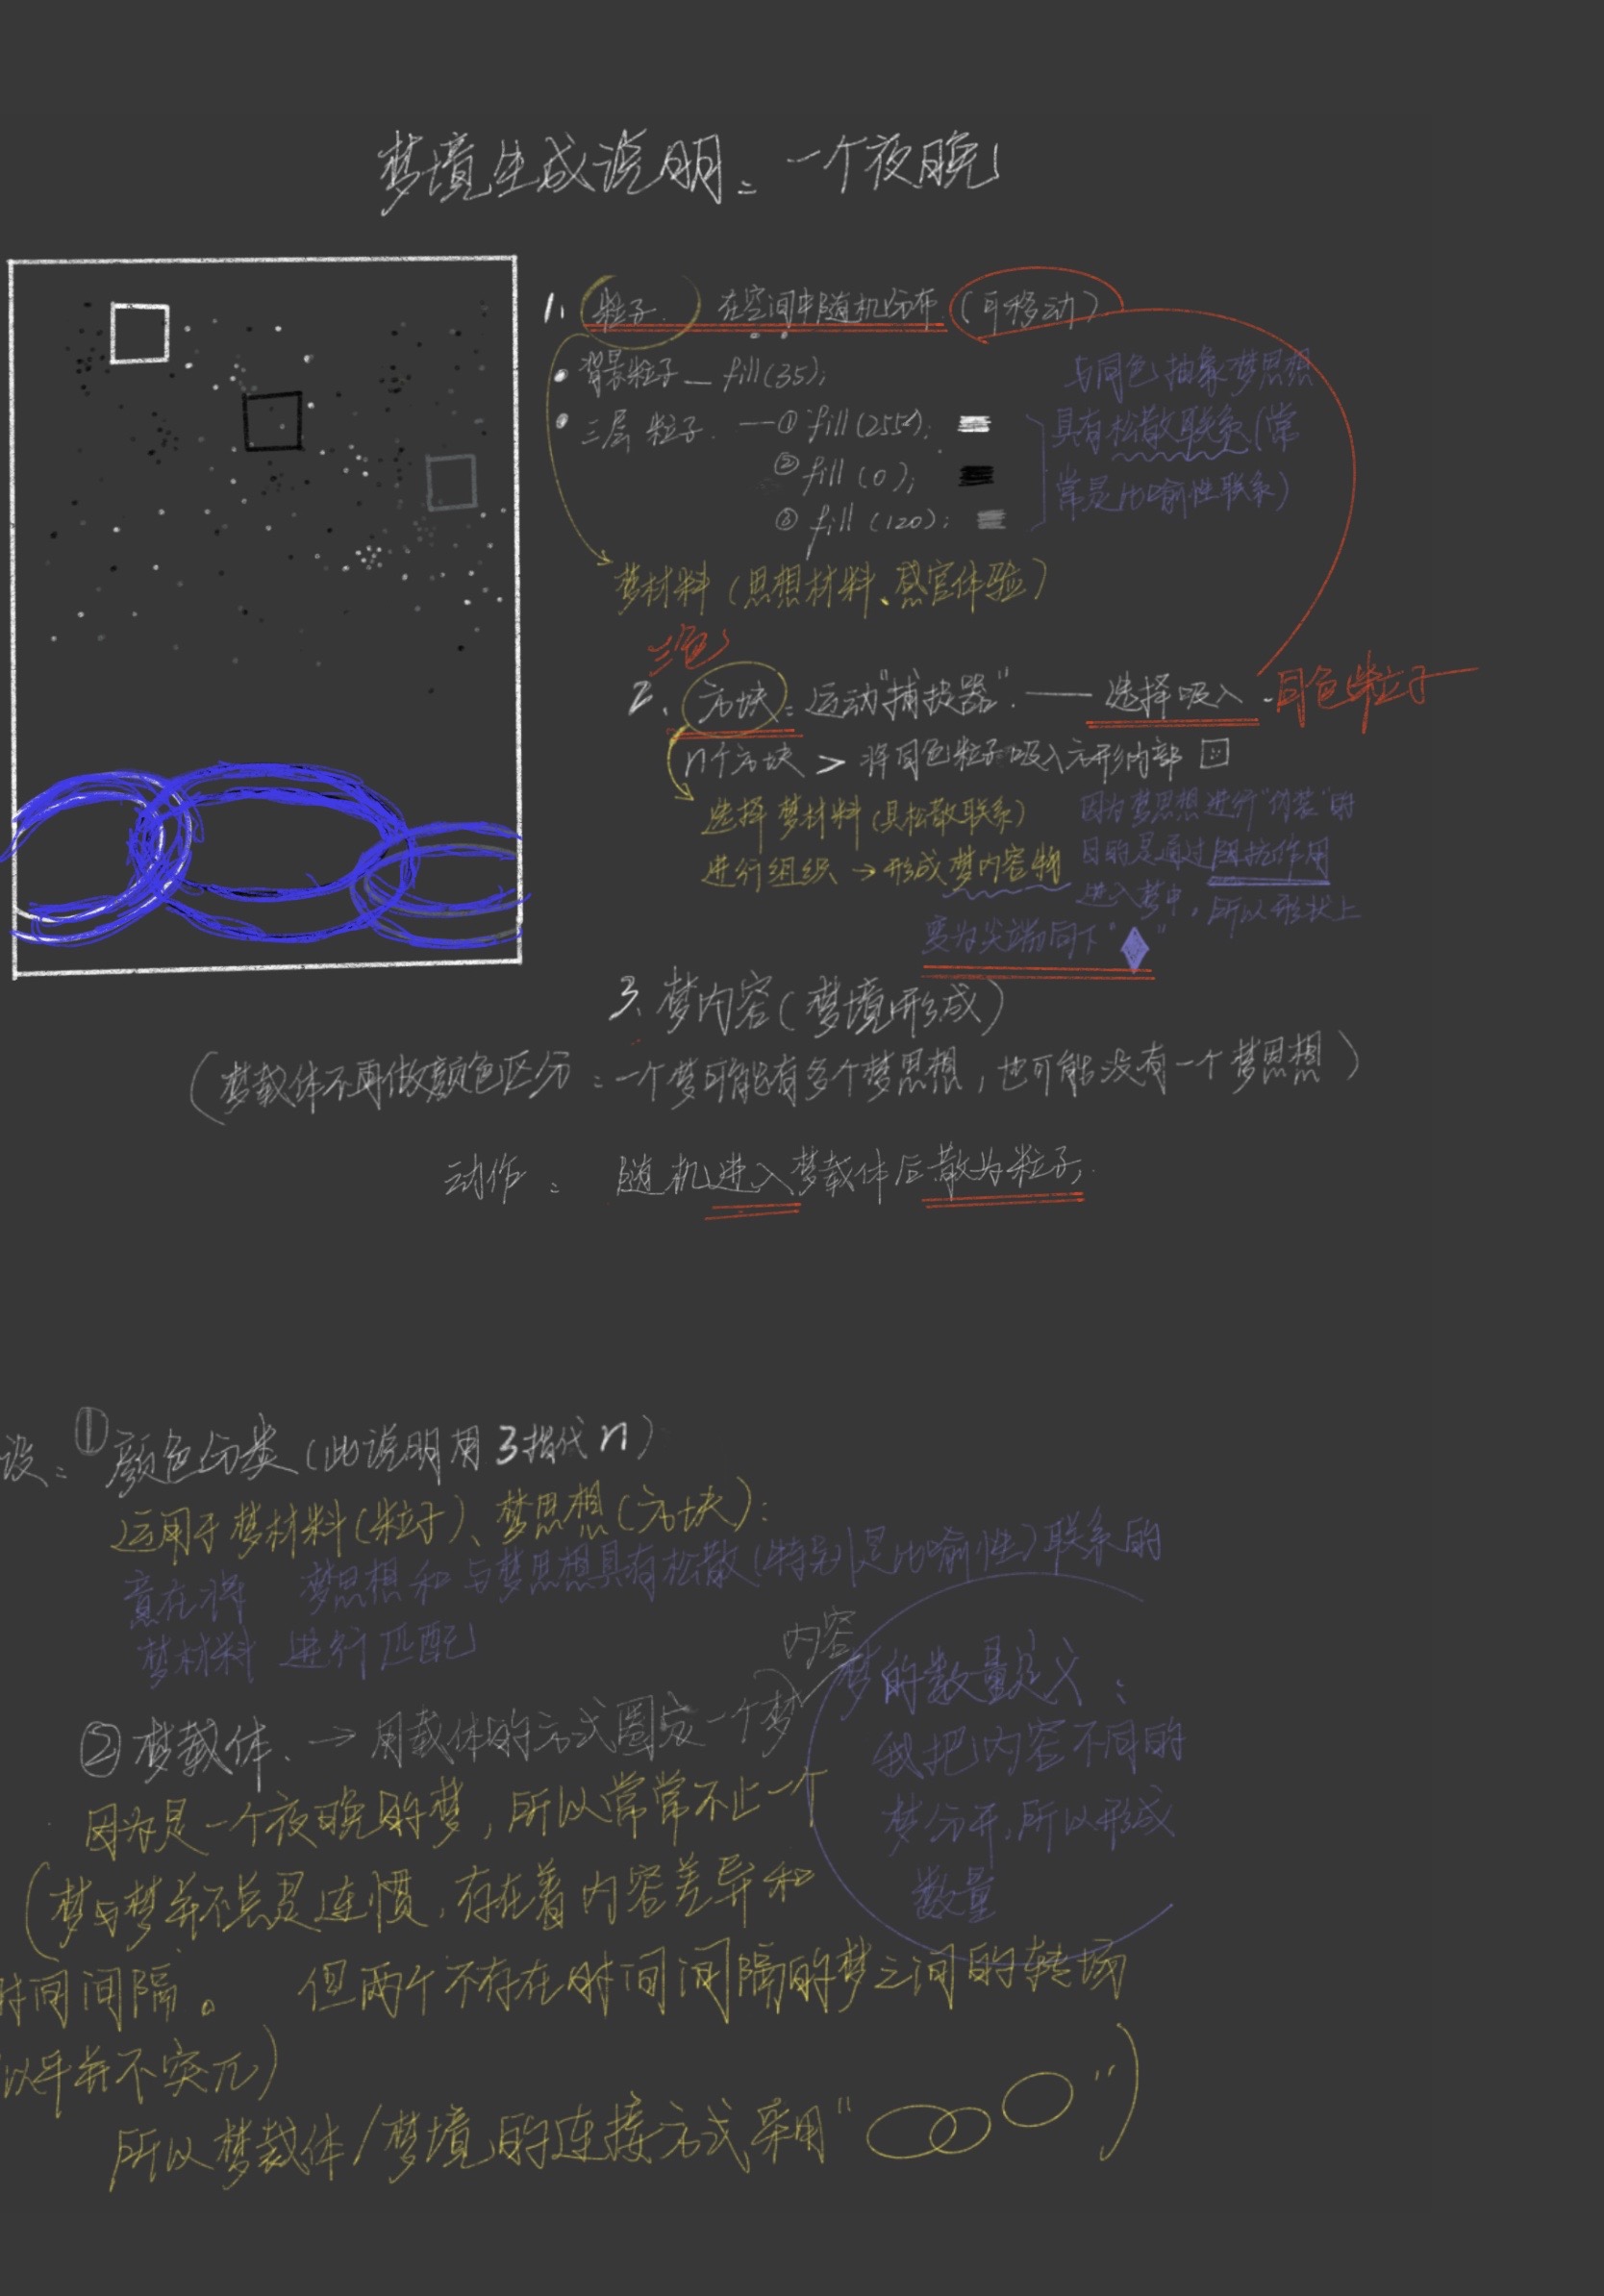 梦境生成说明：一个夜晚
1. 粒子. 在空间中随机分布.（可移动）
背景粒子 — fill(35);
三层粒子. —① fill(255);
② fill(0);
③ fill(120);
与同色抽象梦思想
具有松散联系(常
常是比喻性联系)
梦材料（思想材料、感官体验）
三色
2. 方块：运动"捕捉器". —— 选择吸入.同色粒子
n个方块 > 将同色粒子吸入方形内部
选择梦材料(具松散联系)
进行组织 → 形成梦内容物
因为梦思想进行"伪装"的
目的是通过阻抗作用
进入梦中，所以形状上
变为尖端向下"♦"
3. 梦内容（梦境形成）
（梦载体不再做颜色区分：一个梦可能有多个梦思想，也可能没有一个梦思想）
动作： 随机进入梦载体后散为粒子.
设：①颜色分类（此说明用3指代n）
运用于梦材料(粒子)、梦思想(方块)：
意在将 梦思想和与梦思想具有松散(特别是比喻性)联系的
梦材料 进行匹配
内容
②梦载体. → 用载体的方式圈定一个梦
因为是一个夜晚的梦，所以常常不止一个
(梦与梦并不总是连惯，存在着内容差异和
时间间隔。 但两个不存在时间间隔的梦之间的转场
以乎并不突兀)
所以梦载体/梦境的连接方式采用" "）
梦的数量定义：
我把内容不同的
梦分开，所以形成
数量